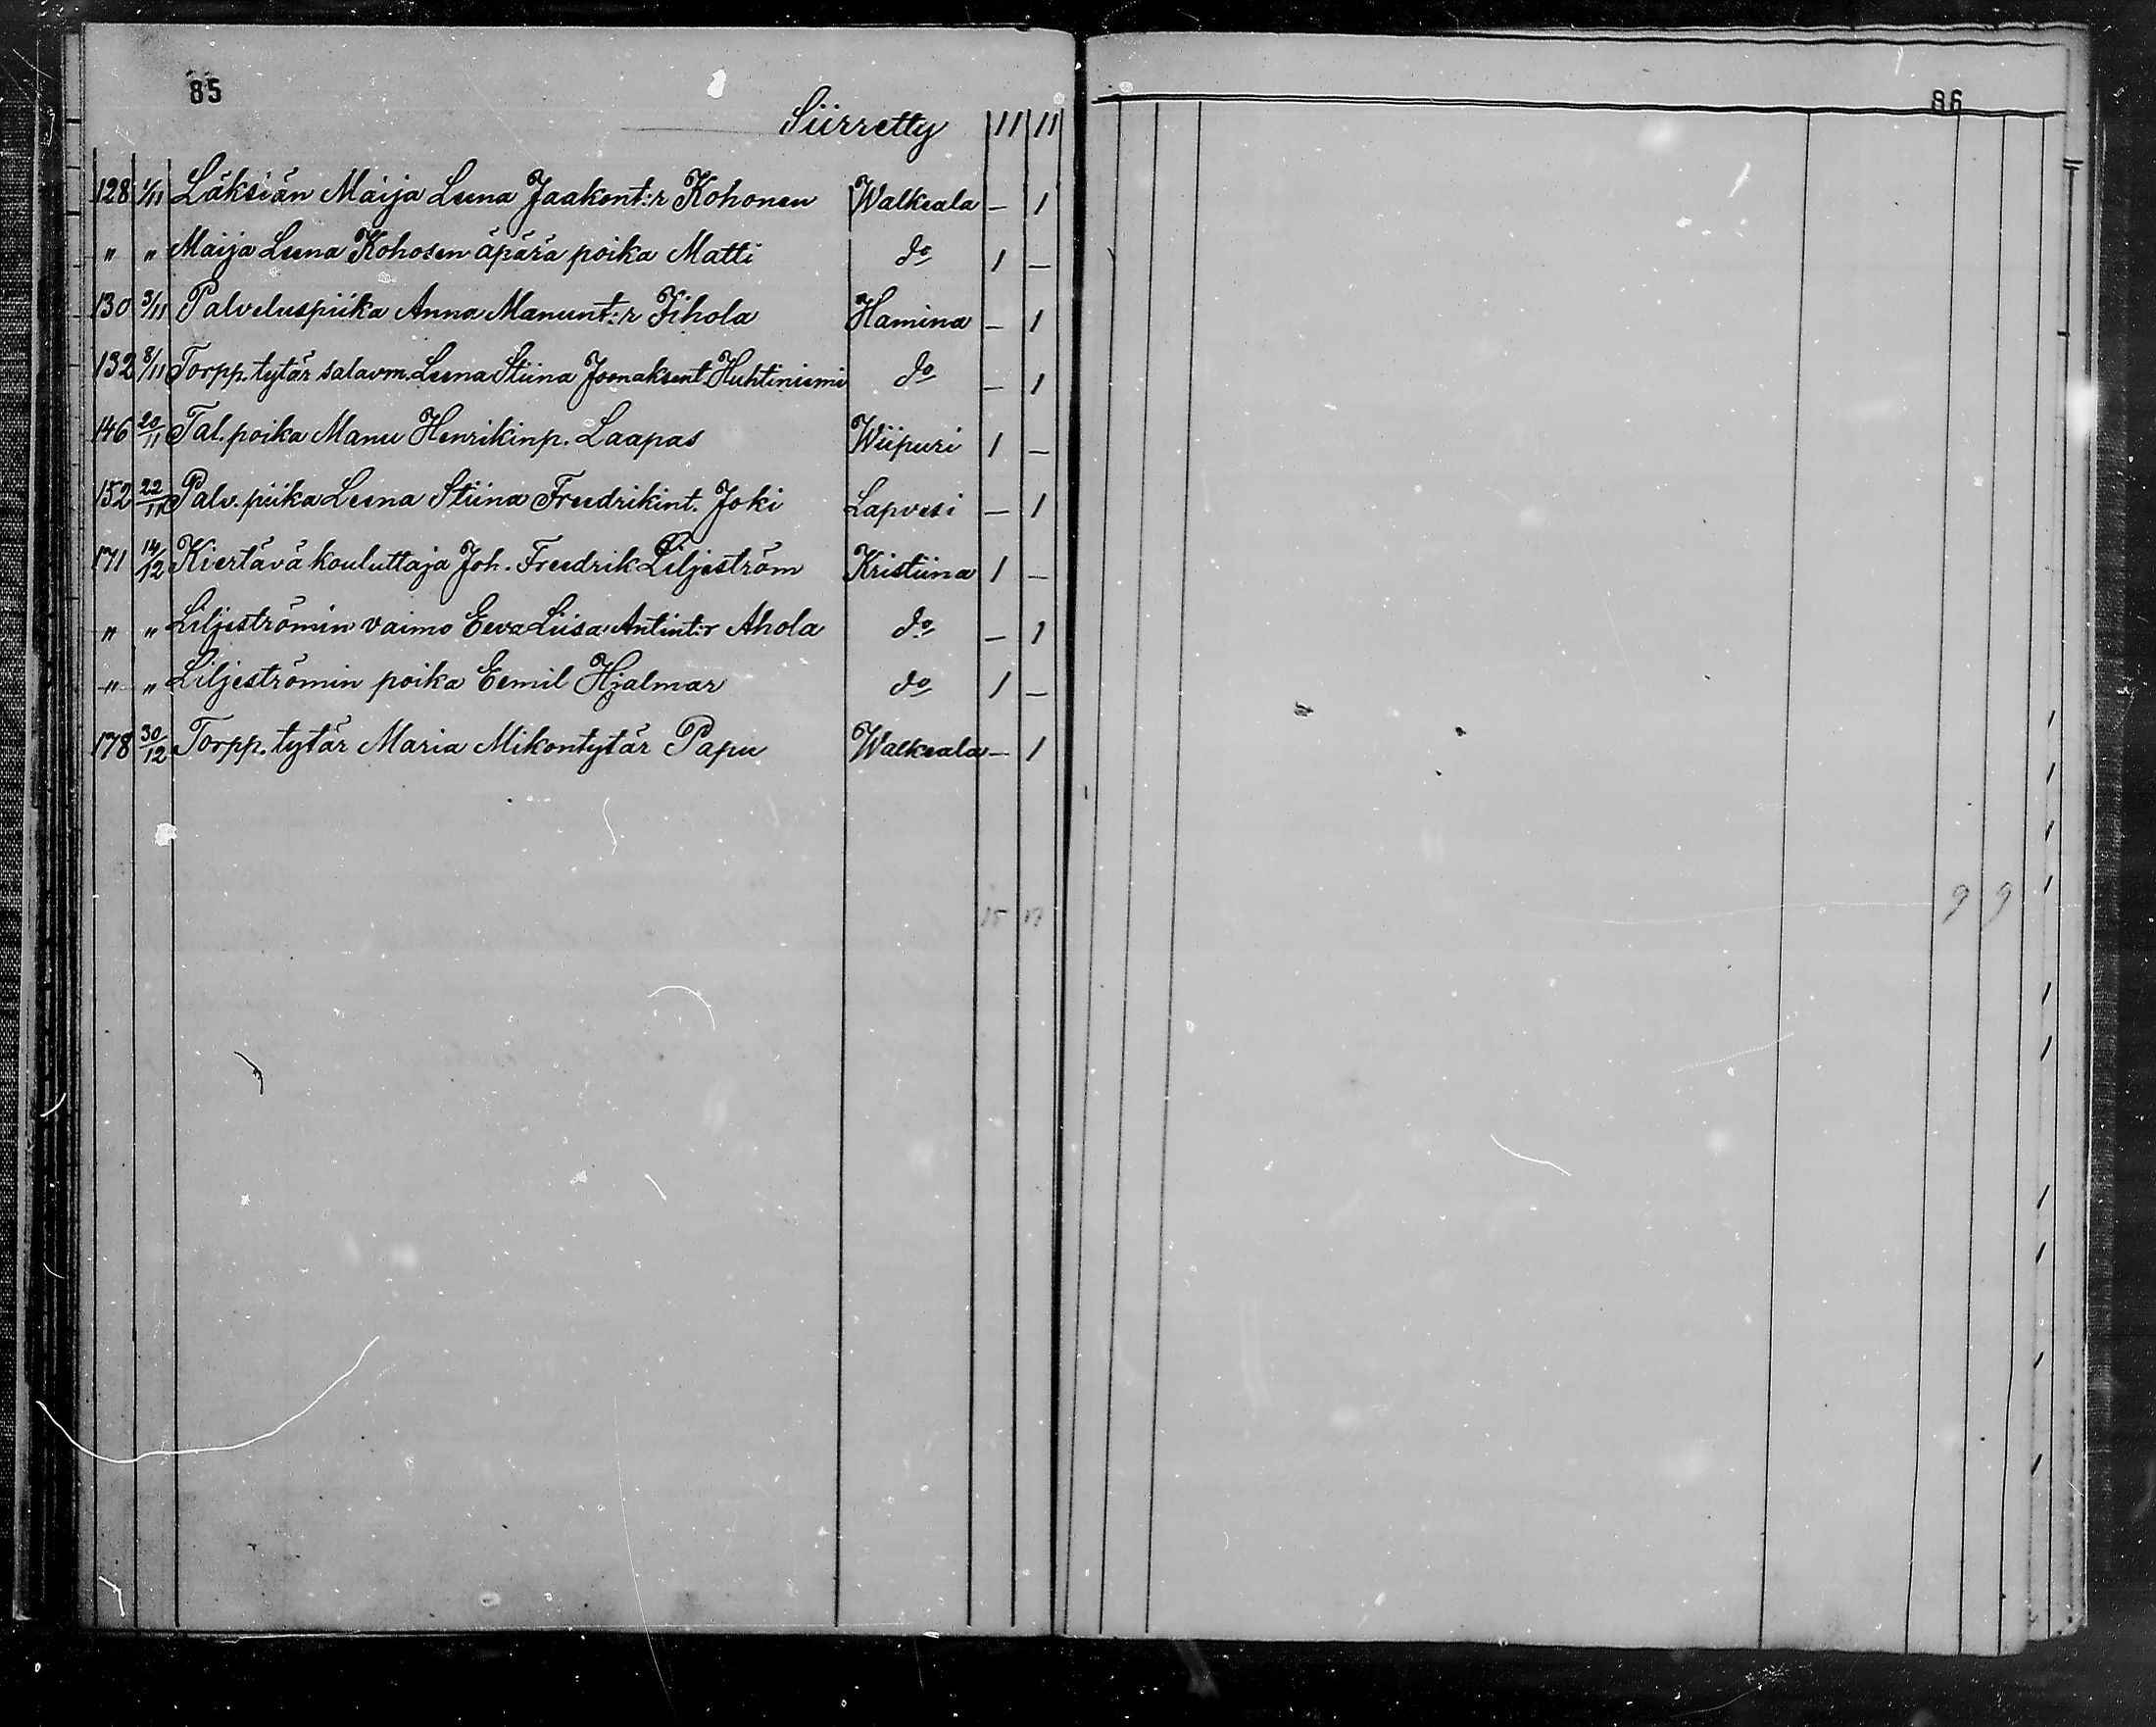 85
Siirretty 11 11
128 1/11 Läksiän Maija Leena Jaakont:r Kohonen Walkeala — 1
" " Maija Leena Kohosen äpärä poika Matti do 1 —
130 3/11 Palveluspiika Anna Manunt:r Jihola Hamina — 1
132 8/11 Torpp. tytär salavm. Leena Stiina Joonaksent. Huhtiniemi do — 1
146 20/11 Tal. poika Manu Henrikinp. Laapas Wiipuri 1 —
152 22/11 Palv. piika Leena Stiina Freedrikint. Joki Lapvesi — 1
171 14/12 Kiertävä kouluttaja Joh. Freedrik Liljeström Kristiina 1 —
" " Liljeströmin vaimo Eeva Liisa Antint:r Ahola do — 1
" " Liljeströmin poika Eemil Hjalmar do 1 —
178 30/12 Torpp. tytär Maria Mikontytär Papu Walkeala — 1
15 17
86
9 9